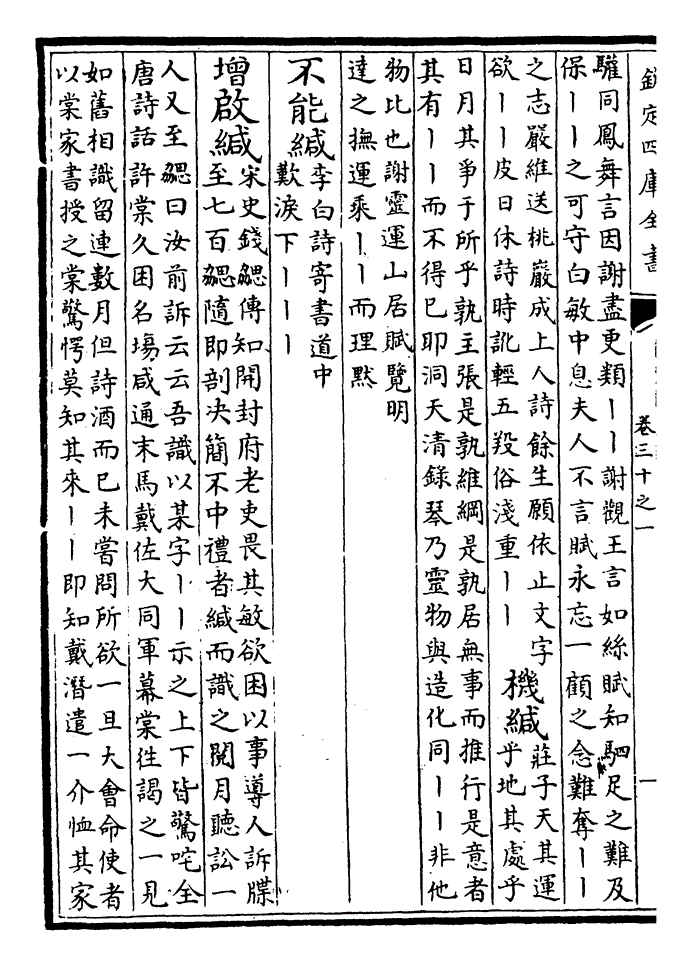 欽定四庫全書
卷三十之一
一
驩同鳳舞言因謝盡更類丨丨謝觀王言如絲賦知駟足之難及
保丨丨之可守白敏中息夫人不言賦永忘一顧之念難奪丨丨
之志嚴維送桃巖成上人詩餘生願依止文字
欲丨丨皮日休詩時訛輕五羖俗淺重丨丨
機緘莊子天其運
乎地其處乎
日月其爭于所乎孰主張是孰維綱是孰居無事而推行是意者
其有丨丨而不得已耶洞天清錄琴乃靈物與造化同丨丨非他
物比也謝靈運山居賦覽明
達之撫運乘丨丨而理默
不能緘李白詩寄書道中
歎淚下丨丨丨
增啟緘宋史錢勰傳知開封府老吏畏其敏欲困以事導人訴牒
至七百勰隨即剖決簡不中禮者緘而識之閱月聽訟一
人又至勰曰汝前訴云云吾識以某字丨丨示之上下皆驚咤全
唐詩話許棠久困名塲咸通末馬戴佐大同軍幕棠徃謁之一見
如舊相識留連數月但詩酒而已未嘗問所欲一旦大會命使者
以棠家書授之棠驚愕莫知其來丨丨即知戴潛遣一介恤其家